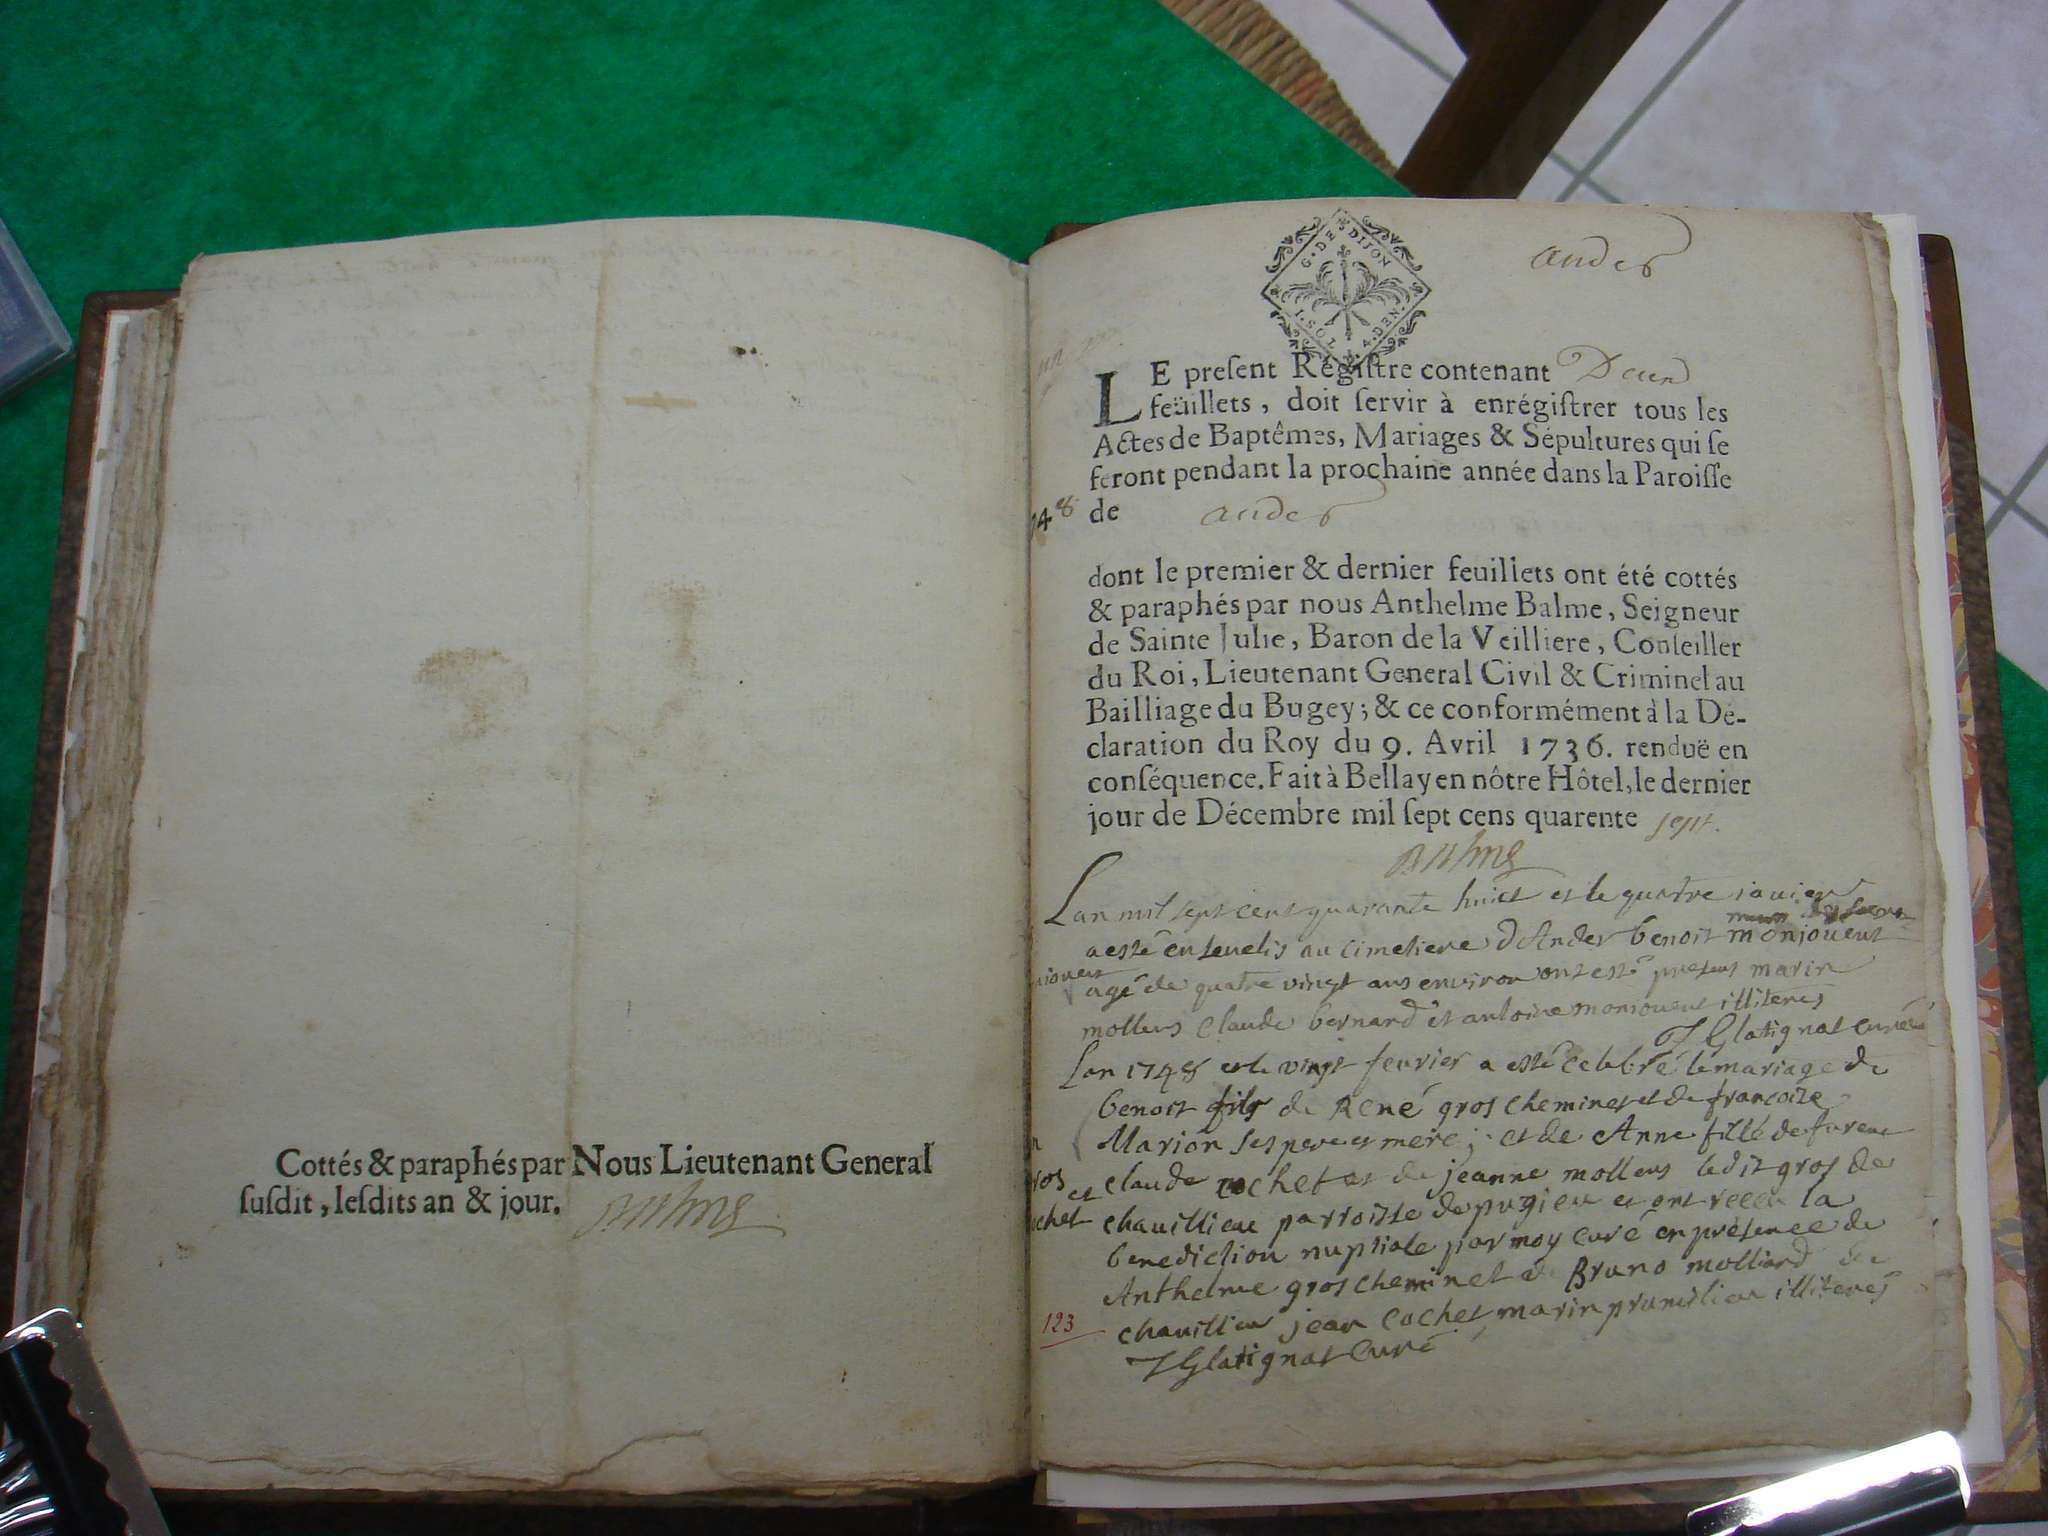 Cottés & paraphés par Nous Lieutenant General
susdit, lesdits an & jour.
G. DE DIJON
andes
LE present Régistre contenant Deux
feüillets, doit servir à enrégistrer tous les
Actes de Baptêmes, Mariages & Sépultures qui se
feront pendant la prochaine année dans la Paroisse
de andes
dont le premier & dernier feuillets ont été cottés
& paraphés par nous Anthelme Balme, Seigneur
de Sainte Julie, Baron de la Veilliere, Conseiller
du Roi, Lieutenant General Civil & Criminel au
Bailliage du Bugey; & ce conformément à la Dé-
claration du Roy du 9. Avril 1736. renduë en
conséquence. Fait à Bellay en nôtre Hôtel, le dernier
jour de Décembre mil sept cens quarente sept.
Balme
Lan mil sept cent quarante huict et le quatre
a esté ensevelis au cimetiere d'Andes benoit monjouent
agé de quatre vingt ans environ ont esté present marin
mollens claude bernard et antoine monjouent illiteres
J Glatignat curé
Lan 1748 et le vingt fevrier a esté celebré le mariage de
benoit fils de René gros cheminet et de francoise
Marion ses pere et mere; et de Anne fille de
claude cochet et de jeanne mollens ledit gros de
chavillieu parroisse de pugieu et ont receu la
benediction nuptiale par moy curé en présence de
Anthelme gros cheminet Bruno molliard de
chavillieu jean cochet marin illiteres
J Glatignat curé
123